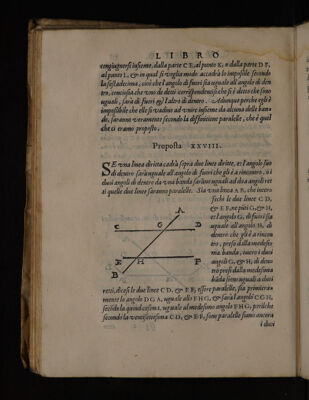 LIBRO
congiugnersi insieme, dalla parte C E, al punto K, ò dalla parte D F,
al punto L, & in qual si voglia modo accadrà lo impossibile secondo
la sestadecima, cioè che l'angolo di fuori sia uguale all'angolo di den
tro, conciosia che uno de detti corrispondenti che si è detto che sono
uguali, sarà di fuori & l'altro di dentro. Adunque perche egli è
impossibile che elle si vadino ad unire insieme da alcuna delle ban
de, saranno veramente secondo la diffinitione paralelle, che è quel
che ci eramo proposto.
Proposta XXVIII.
SE una linea diritta cadrà sopra due linee diritte, et l'angolo suo
di dentro sarà uguale all'angolo di fuori che gli è a rincontro, o i
duoi angoli di dentro da una banda saranno uguali ad dua angoli ret
ti quelle due linee saranno paralelle. Sia una linea A B, che inter
seghi le due linee C D,
& E F, ne punti G, & H,
et l'angolo G, di fuori sia
uguale all'angolo H, di
dentro che gli è a rincon
tro, preso dalla medesi
ma banda, overo i duoi
angoli G, & H, di den
tro presi dalla medesima
bāda sieno uguali a duoi
A
C G D
E H F
B
retti, dicesi le due linee C D, & E F, essere paralelle, sia primiera
mente lo angolo D G A, uguale allo F H G, & sarà l'angolo C G H,
secōdo la quindecima, uguale al medesimo angolo F H G, perilche
secondo la ventisettesima C D, & E F, sono paralelle siano ancora
i duoi